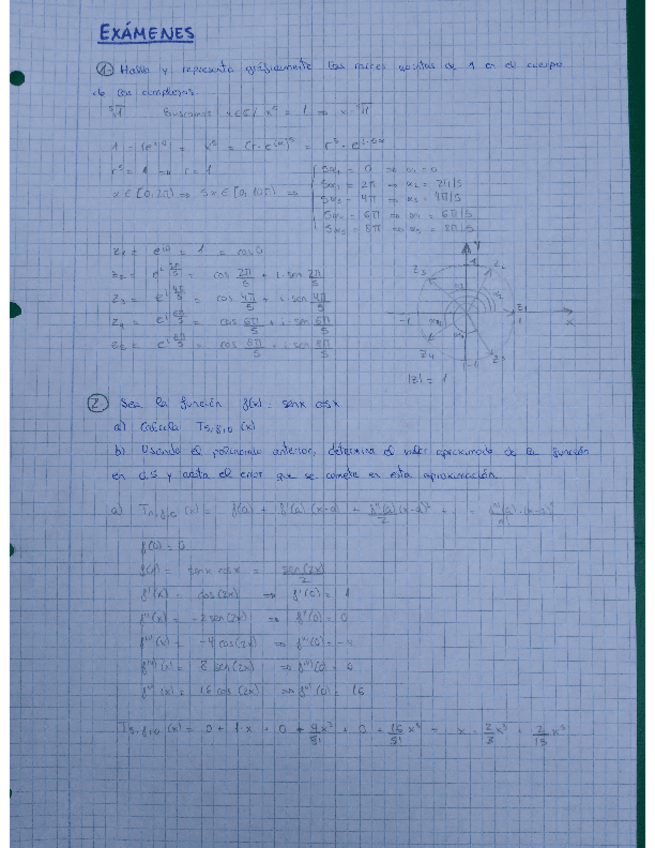 EXÁMENES
1. Halla y representa gráficamente las raíces quintas de 1 en el cuerpo
de los complejos.
Buscamos x∈ℂ / x⁵ = 1 ⇒ x = ⁵√1
r⁵ = 1 ⇒ r = 1
x ∈ [0, 2π) ⇒ 5x ∈ [0, 10π) ⇒
5α₁ = 0 ⇒ α₁ = 0
5α₂ = 2π ⇒ α₂ = 2π/5
5α₃ = 4π ⇒ α₃ = 4π/5
5α₄ = 6π ⇒ α₄ = 6π/5
5α₅ = 8π ⇒ α₅ = 8π/5
z₂ = e^{i 2π/5} = cos 2π/5 + i·sen 2π/5
z₃ = e^{i 4π/5} = cos 4π/5 + i·sen 4π/5
z₄ = e^{i 6π/5} = cos 6π/5 + i·sen 6π/5
z₅ = e^{i 8π/5} = cos 8π/5 + i·sen 8π/5
Y
1
z₃
z₂
z₁
-1
1
x
z₄
z₅
-1
|z| = 1
2. Sea la función f(x) = senx cosx
a) Calcula T₅,f,0 (x)
b) Usando el polinomio anterior, determina el valor aproximado de la función
en 0.5 y acota el error que se comete en esta aproximación
a) Tn,f,a (x) = f(a) + f'(a)(x-a) + f''(a)/2 (x-a)² +
f(0) = 0
f(x) = senx cosx = sen(2x)/2
f'(x) = cos(2x) ⇒ f'(0) = 1
f''(x) = -2 sen(2x) ⇒ f''(0) = 0
f'''(x) = -4 cos(2x) ⇒ f'''(0) = -4
8 sen(2x) ⇒
16 cos(2x) ⇒ = 16
T₅,f,0 (x) = 0 + 1·x + 0 + + 0 + 16/5! x⁵ = x - 2/3 x³ + 2/15 x⁵